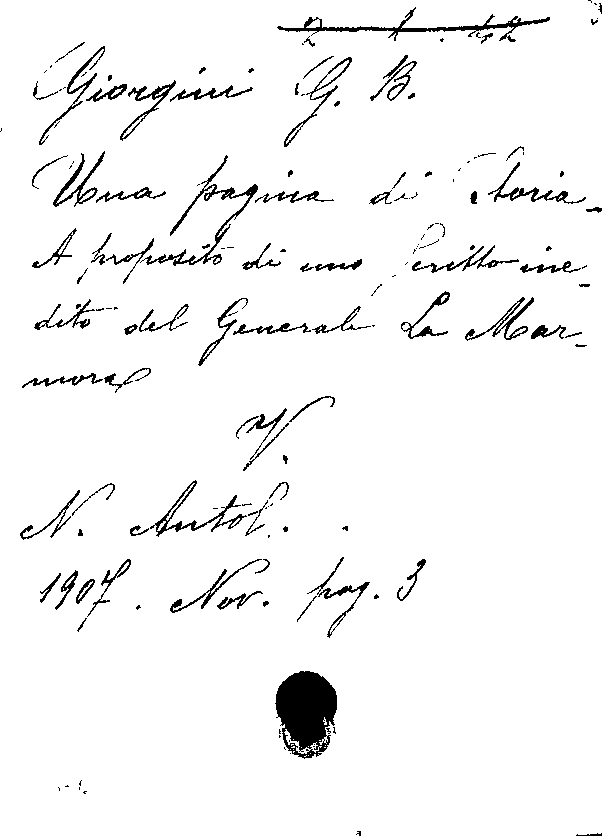 2 - 1 - 42
Giorgini G. B.
Una pagina di Storia -
A proposito di uno Scritto ine-
dito del Generale La Mar-
mora
V.
N. Antol.
1907. Nov. pag. 3